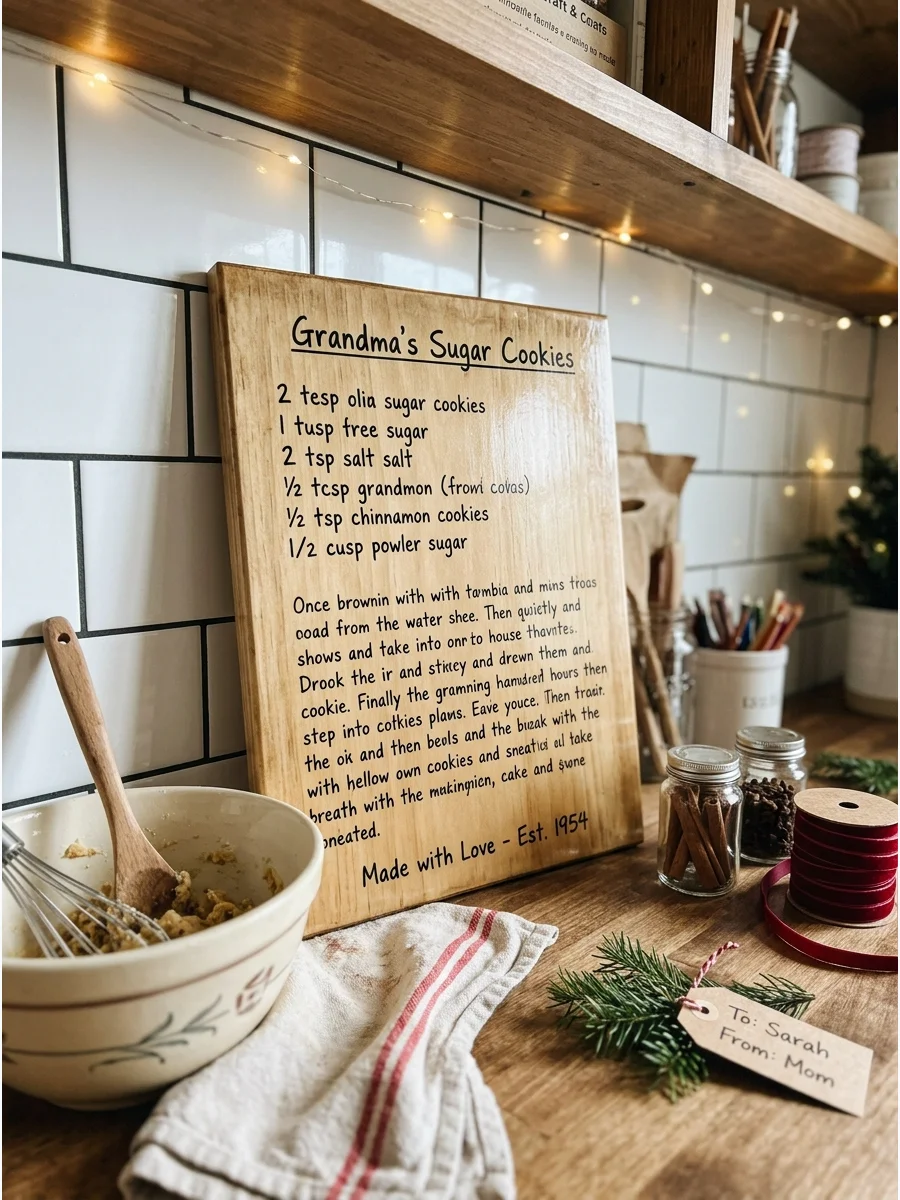 raft & Coats
Grandma's Sugar Cookies
2 tesp olia sugar cookies
1 tusp free sugar
2 tsp salt salt
½ tcsp grandmon (frowl covas)
½ tsp chinnamon cookies
1/2 cusp powler sugar
Once brownin with with tambia and mins troas
ooad from the water shee. Then quietly and
shows and take into onr to house
Drook the ir and and drewn them and
cookie. Finally the gramning hours then
step into plans. Eave youce. Then
the ok and then beuls and the with the
with hellow own cookies and take
breath with the makingien, cake and
oneated.
Made with Love - Est. 1954
To: Sarah
From: Mom